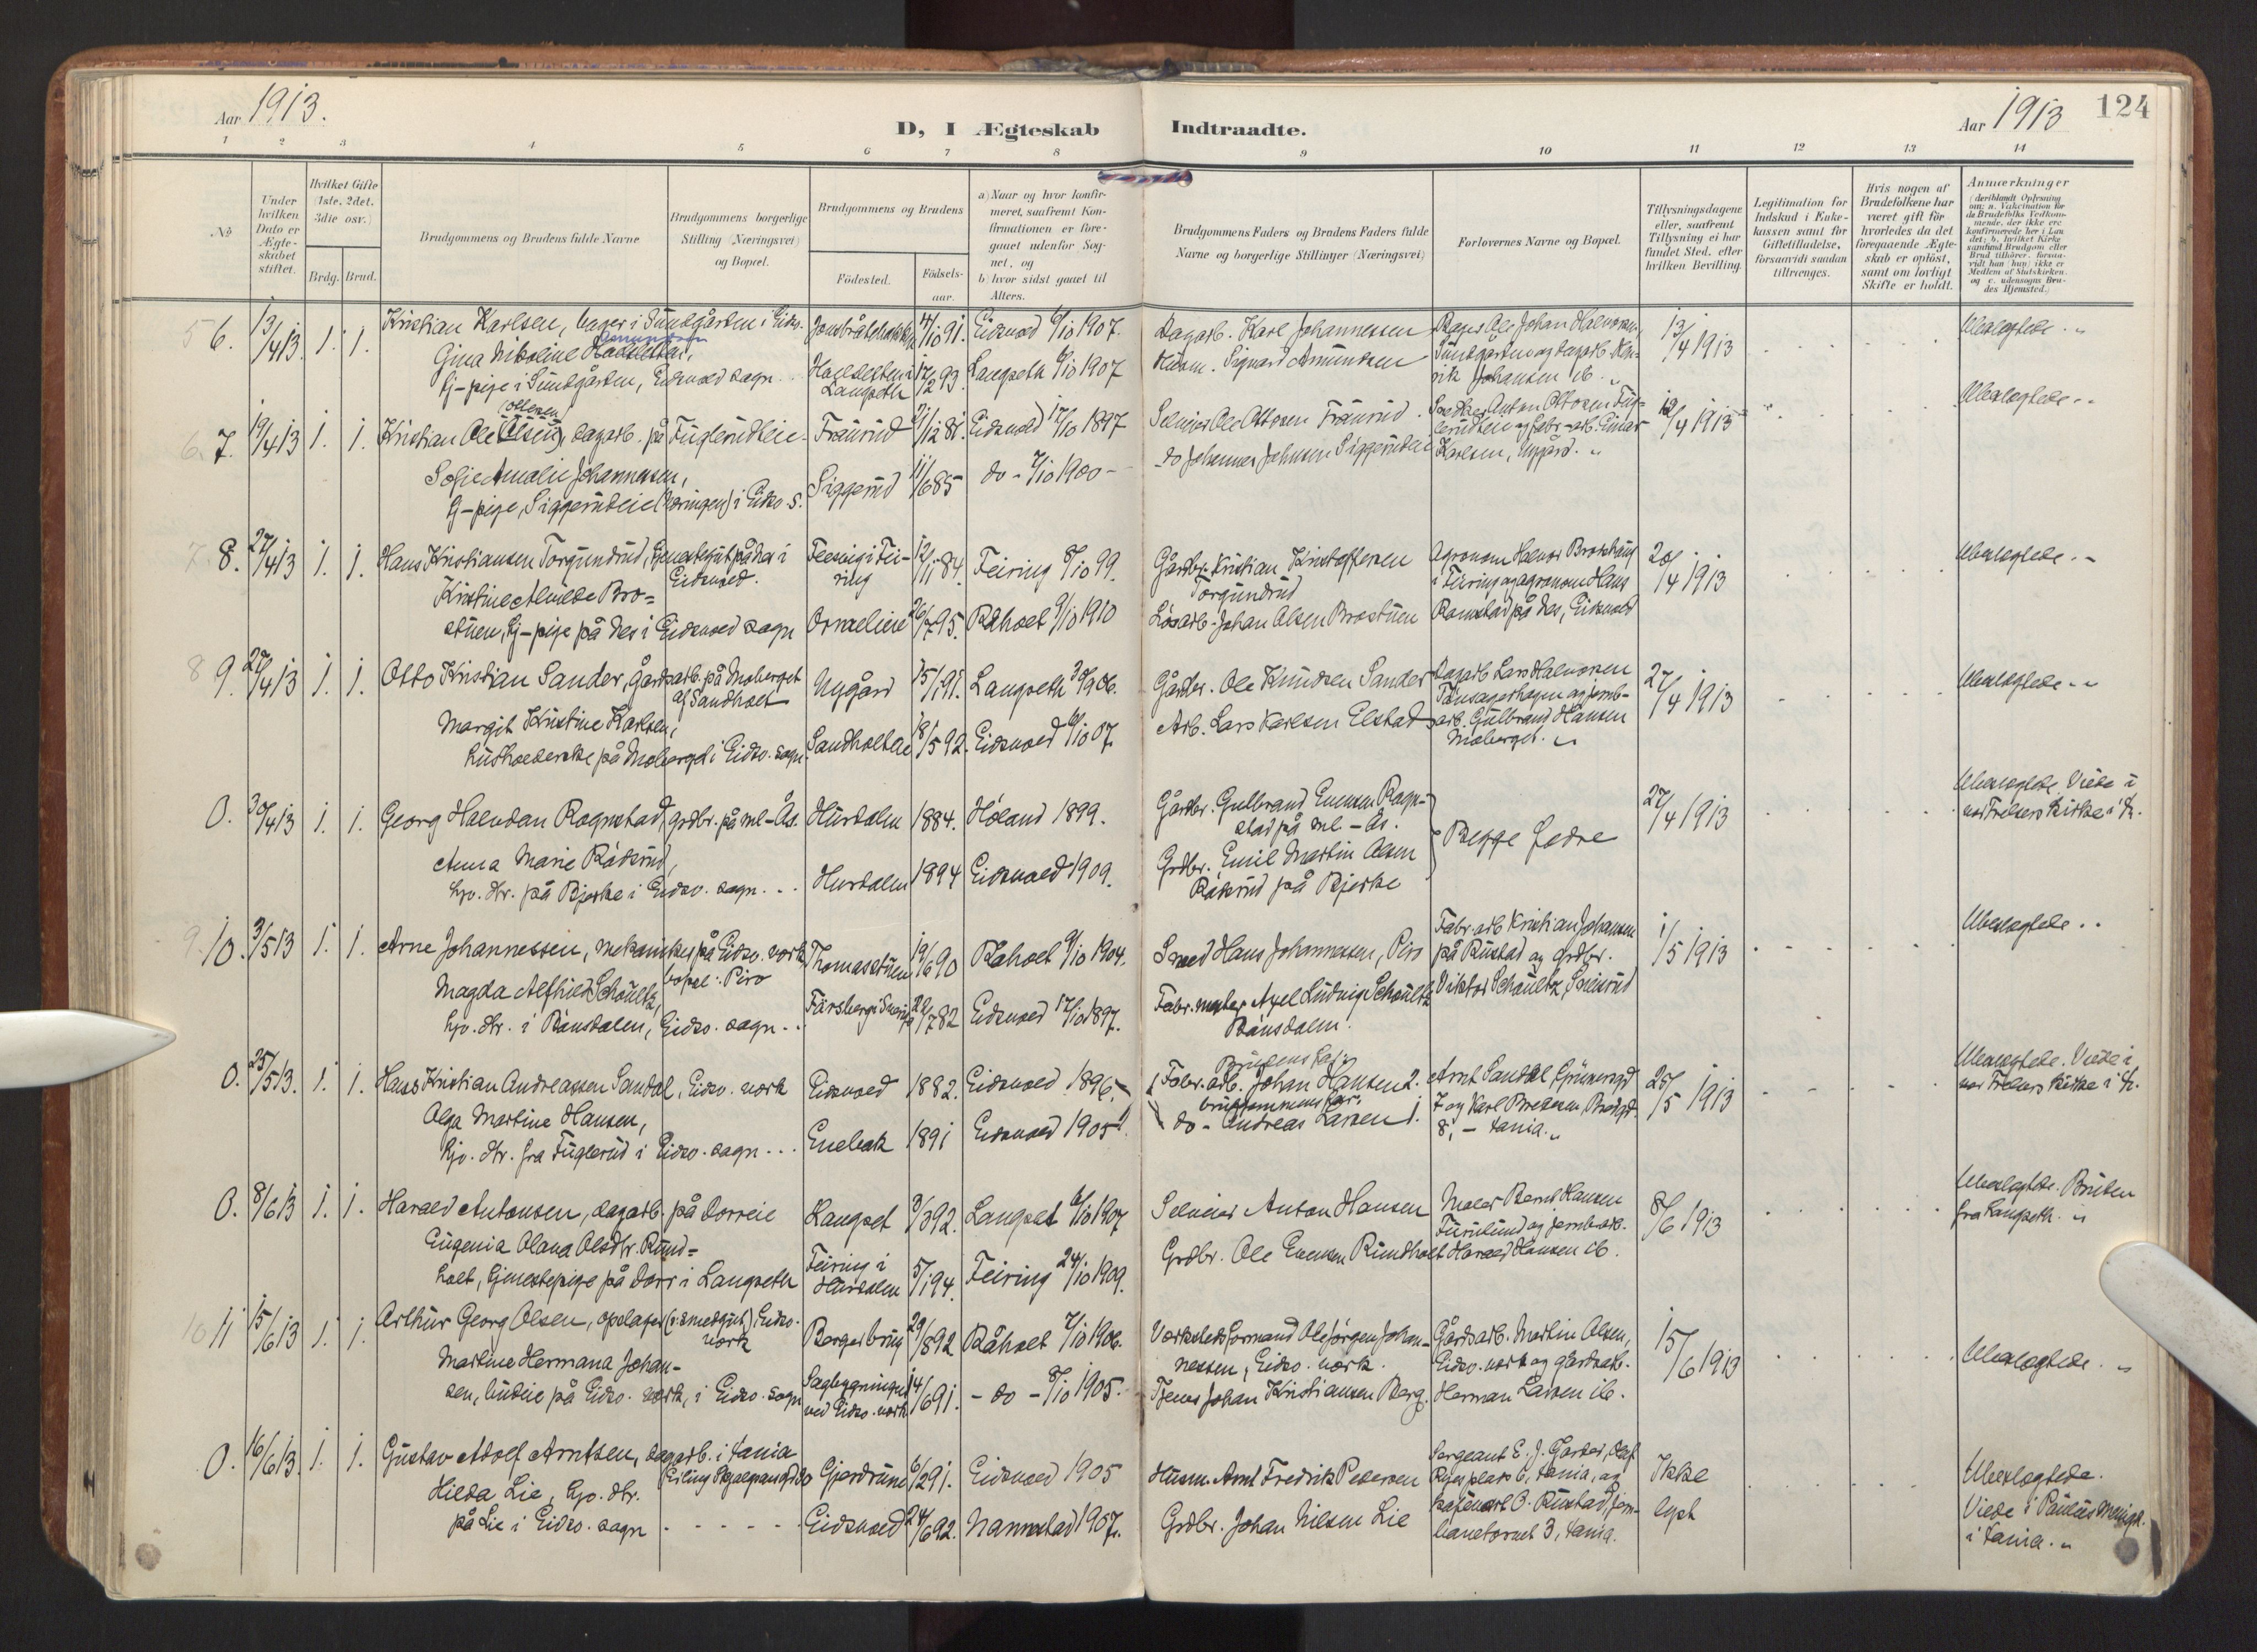 Aar 1913.
D, I Ægteskab Indtraadte.
Aar 1913 124
1 2 3 4 5 6 7 8 9 10 11 12 13 14
No
Under hvilken Dato er Ægteskabet stiftet.
Hvilket Gifte (1ste, 2det, 3die osv.)
Brdg. Brud.
Brudgommens og Brudens fulde Navne
Brudgommens borgerlige Stilling (Næringsvei) og Bopæl.
Brudgommens og Brudens
Fødested.
Fødselsaar.
a) Naar og hvor konfirmeret, saafremt Konfirmationen er foregaaet udenfor Sognet, og
b) hvor sidst gaaet til Alters.
Brudgommens Faders og Brudens Faders fulde Navne og borgerlige Stillinger (Næringsvei)
Forlovernes Navne og Bopæl.
Tillysningsdagene eller, saafremt Tillysning ei har fundet Sted, efter hvilken Bevilling.
Legitimation for Indskud i Enkekassen samt for Giftetilladelse, forsaavidt saadan tiltrænges.
Hvis nogen af Brudefolkene har været gift før hvorledes da det foregaaende Ægteskab er opløst, samt om lovligt Skifte er holdt.
Anmærkninger
5 6. 13/4 13 1. 1. Kristian Karlsen, bager i Sundgården i Eidsv. 14/10 91. Eidsvold 6/10 1907. Dagarb. Karl Johannessen Bager Ole Johan Halvorsen, 13/4 1913 Ubeslegtede.
Gina Nikoline
tj-pige i Sundgården, Eidsvold sogn Langseth 12/2 93. Langseth 6/10 1907 Husm. Sigvard Amundsen Sundgården og dagarb. Henrik Johansen ib.
6. 7. 19/4 13 1. 1. Kristian Ole (Olsen) Ottesen, dagarb. på Fuglerudeie Fraurud 21/12 81. Eidsvold 17/10 1897 Selveier Ole Ottosen Fraurud. Snedker Anton Ottosen Fuglerudeie og fabr-arb. Einar Karlsen, Nygård. 12/4 1913 Ubeslegtede.
Sofie Amalie Johannessen,
tj-pige, Siggerudeie i Eidsv. S. Siggerud 11/6 85 do - 7/10 1900 - do Johannes Johnsen Siggerudeie
7. 8. 27/4 13 1. 1. Hans Kristiansen Torgundrud, tjenestegut på Nes i Eidsvold. Feiring 12/11 84. Feiring 8/10 99. Gårdbr. Kristian Kristoffersen Torgundrud Agronom Halvor Brostuen i Feiring og agronom Hans Ramstad på Nes, Eidsvold 20/4 1913 Ubeslegtede.
Kristine Amalie Brostuen, tj-pige på Nes i Eidsvold sogn 26/7 95. Råholt 9/10 1910 Løsarb. Johan Olsen Brostuen
8 9. 27/4 13 1. 1. Otto Kristian Sander, gårdsarb. på Moberget af Sandholt Nygård 15/1 91. Langseth 30/9 06. Gårdbr. Ole Knudsen Sander Dagarb Lars Halvorsen Tønsagerhagen og jernb-arb. Gulbrand Hansen Moberget. 27/4 1913 Ubeslegtede
Margit Kristine Karlsen,
husholderske på Moberget i Eidsv. sogn. Sandholteie 18/5 92. Eidsvold 6/10 07. Arb. Lars Karlsen Elstad
0. 30/4 13 1. 1. Georg Halvdan Rognstad, grdbr. på ml-Ås. Hurdalen 1884. Høland 1899. Gårdbr. Gulbrand Evensen Rognstad på ml-Ås. Begge fædre 27/4 1913 Ubeslegtede. Viede i vor Frelsers kirke i Kr.
Anna Marie Råskrud,
hjv. dtr. på Bjerke i Eidsv. sogn. Hurdalen 1894 Eidsvold 1909. Grdbr. Emil Martin Olsen Råskrud på Bjerke
9. 10. 3/5 13 1. 1. Arne Johannessen, mekaniker på Eidsv. verk bopæl: Piro Thomasstuen 19/6 90 Råholt 9/10 1904. Smed Hans Johannessen, Piro Fabr-arb Kristian Johansen på Rustad og grdbr. Viktor Schoultz, 1/5 1913 Ubeslegtede
Magda Alfhild Schoultz,
hjv. dtr. i Rånsdalen, Eidsv. sogn. 22/7 82 Eidsvold 17/10 1897. Fabr. mester Axel Ludvig Schoultz Rånsdalen.
0. 25/5 13. 1. 1. Hans Kristian Andreassen Sandal, Eidsv. verk Eidsvold 1882. Eidsvold 1896. Brudens far: Fabr. arb. Johan Hansen 2. Arnt Sandal, Grünersgd 7 og Karl Pedersen, Bredgt 8, - tania. 25/5 1913 Ubeslegtede. Viede i vor Frelsers kirke i Kr.
Olga Martine Hansen,
hjv. dtr. fra Fuglerud i Eidsv. sogn... Enebak 1891 Eidsvold 1905 brudgommens far: do - Andreas Larsen 1.
0. 8/6 13 1. 1. Harald Antonsen, dagarb. på Dorreie Langset 3/3 92. Langset 6/10 1907 Selveier Anton Hansen Maler Bernt Hansen Furulund og jernb-arb. Harald Hansen ib. 8/6 1913 Ubeslegtede. Bruden fra Langseth.
Eugenia Olava Olsdtr. Rundholt, tjenestepige på Dorr i Langseth Feiring i Hurdalen 5/1 94. Feiring 24/10 1909. Grdbr. Ole Evensen Rundholt
10 11 15/6 13 1. 1. Arthur Georg Olsen, opslager (o: smedgut), Eidsv. verk 29/8 92 Råholt 7/10 1906. Verkstedsformand Ole Jørgen Johannessen, Eidsv. verk. Gårdsarb. Martin Olsen, Eidsv. verk og gårdsarb. Herman Larsen ib. 15/6 1913 Ubeslegtede.
Martine Hermana Johansen, budeie på Eidsv. verk, i Eidsv. sogn Sagbygningen ved Eidsv. verk 14/6 91. - do - 8/10 1905. Tjener Johan Kristiansen Berg.
0. 16/6 13. 1. 1. Gustav Adolf Arntsen, dagarb. i tania Gjerdrum 6/2 91. Eidsvold 1905 Husm. Arnt Fredrik Pedersen Sergeant E. J. Olaf Ryes plads 6, tania, og O. Rustad, jernbanetorvet 3, tania. Ikke lyst Ubeslegtede. Viede i Paulus menigh. i tania.
Hilda Lie, hjv. dtr.
på Lie i Eidsv. sogn Eidsvold 24/6 92. Nannestad 1907. Grdbr. Johan Nilsen Lie